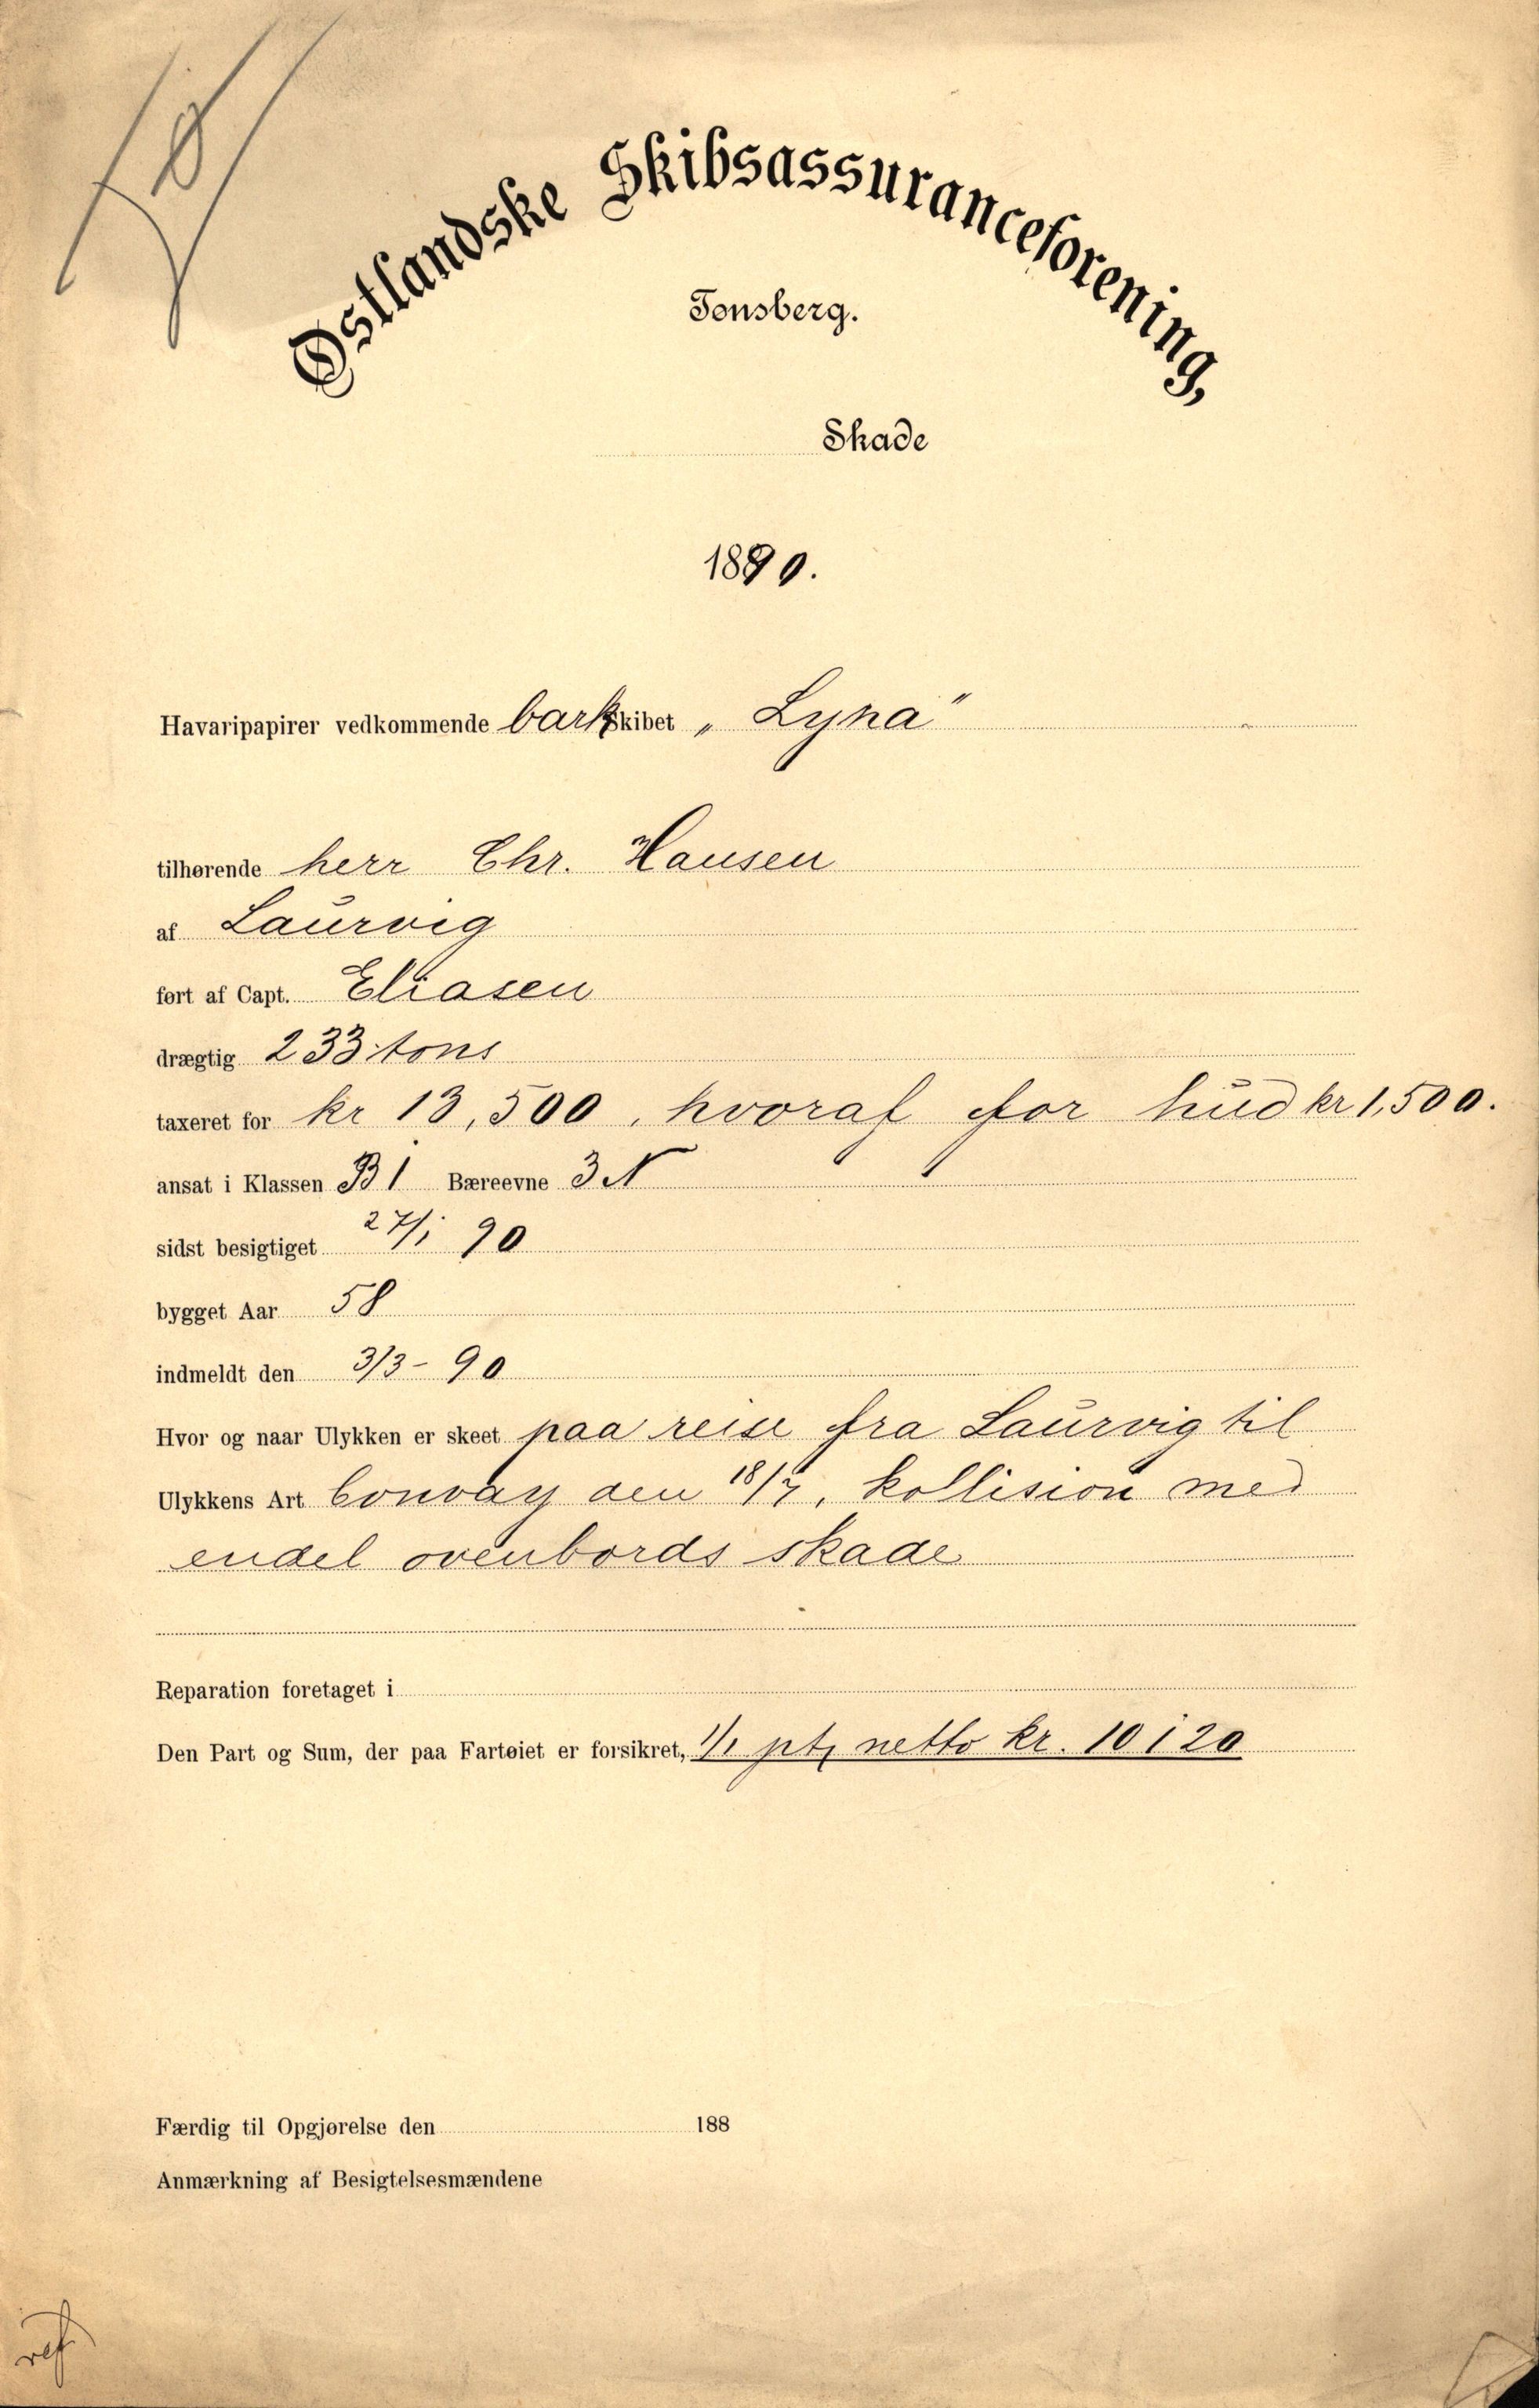 Østlandske Skibsassuranceforening,
Tønsberg.
Skade
1890.
Havaripapirer vedkommende barkskibet „Lyna"
tilhørende herr Chr. Hansen
af Laurvig
ført af Capt. Eliasen
drægtig 233 tons
taxeret for kr 13,500, hvoraf for hud kr 1,500.
ansat i Klassen B 1 Bæreevne 3 N
sidst besigtiget 27/1 90
bygget Aar 58
indmeldt den 3/3 - 90
Hvor og naar Ulykken er skeet paa reise fra Laurvig til
Ulykkens Art Convay den 18/7, kollision med
endel ovenbords skade
Reparation foretaget i
Den Part og Sum, der paa Fartøiet er forsikret, 1/1 pt, netto kr. 10120
Færdig til Opgjørelse den 188
Anmærkning af Besigtelsesmændene
ref